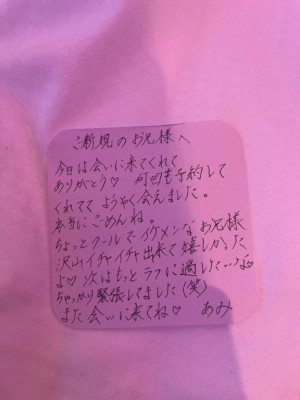 ご新規のお兄様へ
今日は会いに来てくれて
ありがとう♡ 何回も予約して
くれてて ようやく会えました。
本当にごめんね。
ちょっとクールで イケメンなお兄様
沢山イチャイチャ出来て嬉しかった
よ♡ 次はもっとラフに過したいな♡
ちゃっかり緊張してました(笑)
また会いに来てね♡ あみ